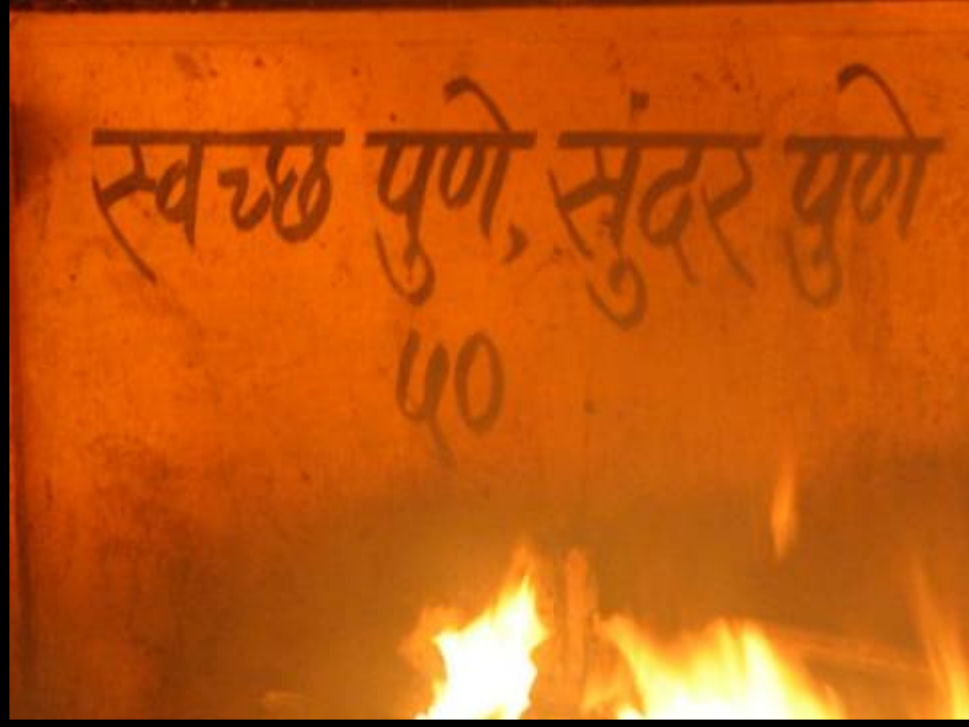 स्वच्छ पुणे, सुंदर पुणे
५०